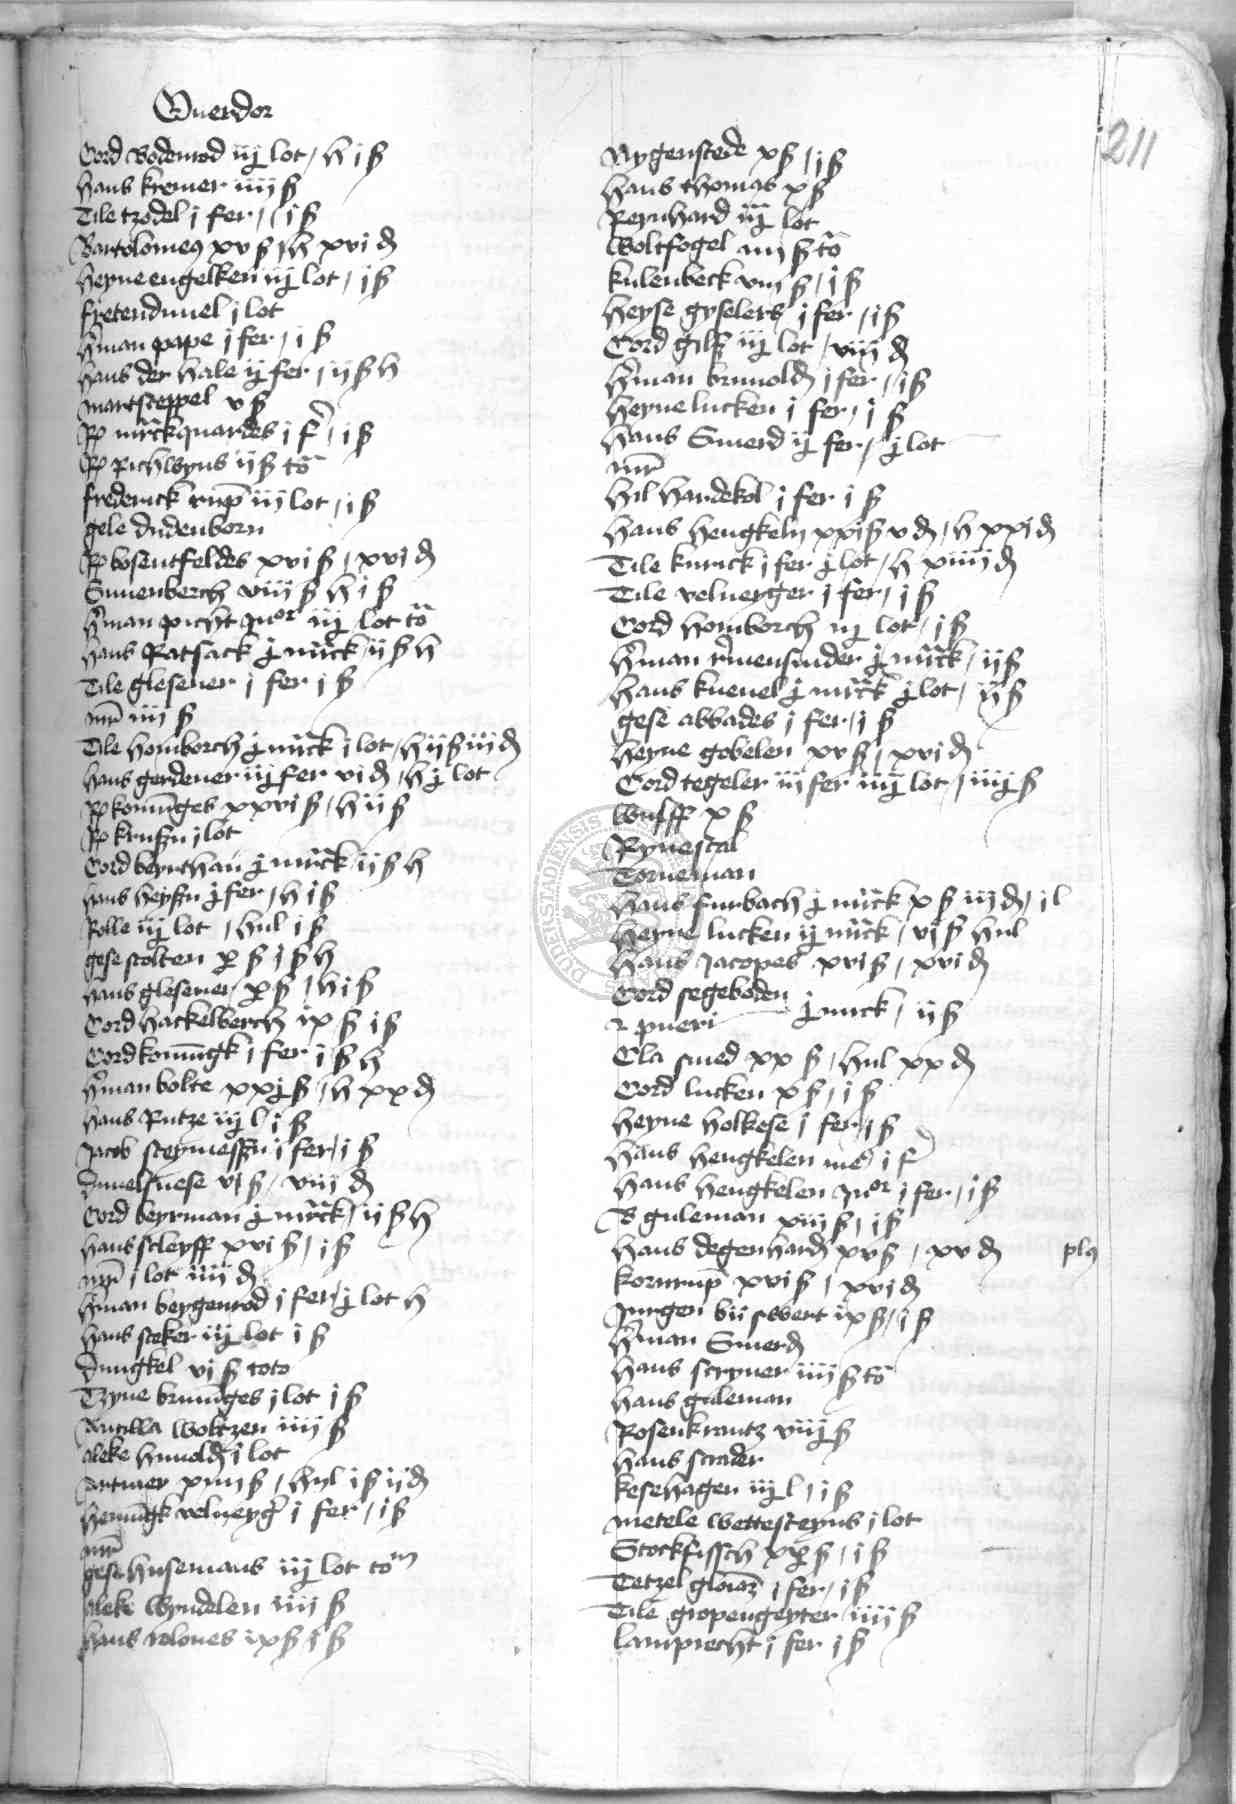 Querdor
Cord Bodenrod iij lot / h i ß
hans kremer iiij ß
Tile tzodel i fer / i ß
Bartolomeus xv ß / h xvi d
heyne engelken iij lot / i ß
fretenduuel i lot
hman pape i fer / i ß
hans der hale ij fer / ij ß h
martsceppel v ß
Ro mrckquardes i f / i ß
Ro Richwyns ij ß to
frederick rup iij lot / i ß
gele dudenborn
Ro bosentfeldes xvi ß / xvi d
Suuenberch viii ß h i ß
hman picht Juor iij lot to
hans Ratsack i mrck / ij ß h
Tile glesener i fer i ß
mr iiij ß
Tile homborch i mrck i lot / h ij ß iij d
hans gerdener iij fer vi d / h i lot
Ro konniges xxvi ß / h ij ß
Ro krußen i lot
Cord beyrthan i mrck ij ß h
hans heyßen i fer / h i ß
Rolle iij lot / hul i ß
gese scolten x ß i ß h
hans glesener x ß / h i ß
Cord hackelberch ix ß i ß
Cord konningk i fer i ß h
hman bolte xxi ß / h xx d
hans Rutze iij l i ß
Jacob steynmeßen i fer / i ß
Cord beyrman i mrck / ij ß h
hans scleyff xvi ß / i ß
i lot iiij d
hman beygenrod i fer / i lot h
hans steker iij lot i ß
dungkel vi ß toto
Tzyne bruniges i lot i ß
Ancilla woltzen iiij ß
aleke hunold i lot
xiiij ß / hul i ß ij d
Henningk velueyger i fer / i ß
mr
gese husemans iij lot tom
aleke wyndelen iiij ß
hans nolones ix ß i ß
Nygenstede x ß / i ß
hans thomas x ß
Reynhard iij lot
woltfogel iiij ß to
kulenbeck viii ß / i ß
heyse gyselers i fer / i ß
Cord gilß iij lot / viii d
hman brunold i fer / i ß
heyne lucken i fer / i ß
hans Smerd ij fer / i lot
mr
hil hardekol i fer i ß
hans hengkeln xxi ß v d / h xxi d
Tile knrick i fer i lot / h xiiij d
Tile velueyger i fer / i ß
Cord homborch iij lot / i ß
hman rmensnider i mrck / ij ß
hans kneuel i mrck i lot / ij ß
gese abbades i fer / i ß
heyne gobelen xv ß / xvi d
Cord tegeler iij fer iij lot / iiij ß
wulff x ß
Rynestal
Torneman
hans furbach i mrck x ß iij d / i l
heyne lucken ij mrck / vi ß hul
hans Jacopes xvi ß / xvi d
Cord segeboden
i mrck / ij ß
2 pueri
Cla smed xx ß / hul xx d
Cord lucken x ß / i ß
heyne holkese i fer / i ß
hans hengkelen med i f
hans hengkelen Juor i fer / i ß
B guleman xiii ß / i ß
hans degenhard xv ß / xv d plus
kornrup xvi ß / xvi d
Jurgen bii swert ix ß / i ß
hman Smerd
hans scryuer iiij ß to
hans guleman
Rosenkrantz viii ß
hans scrader
kesehagen iij l / i ß
metele wettesteyns i lot
Stockfissch x ß / i ß
Tetzel i fer / i ß
Tile gropengeyter iiij ß
lamprecht i fer i ß
211
DUDERSTADIENSIS